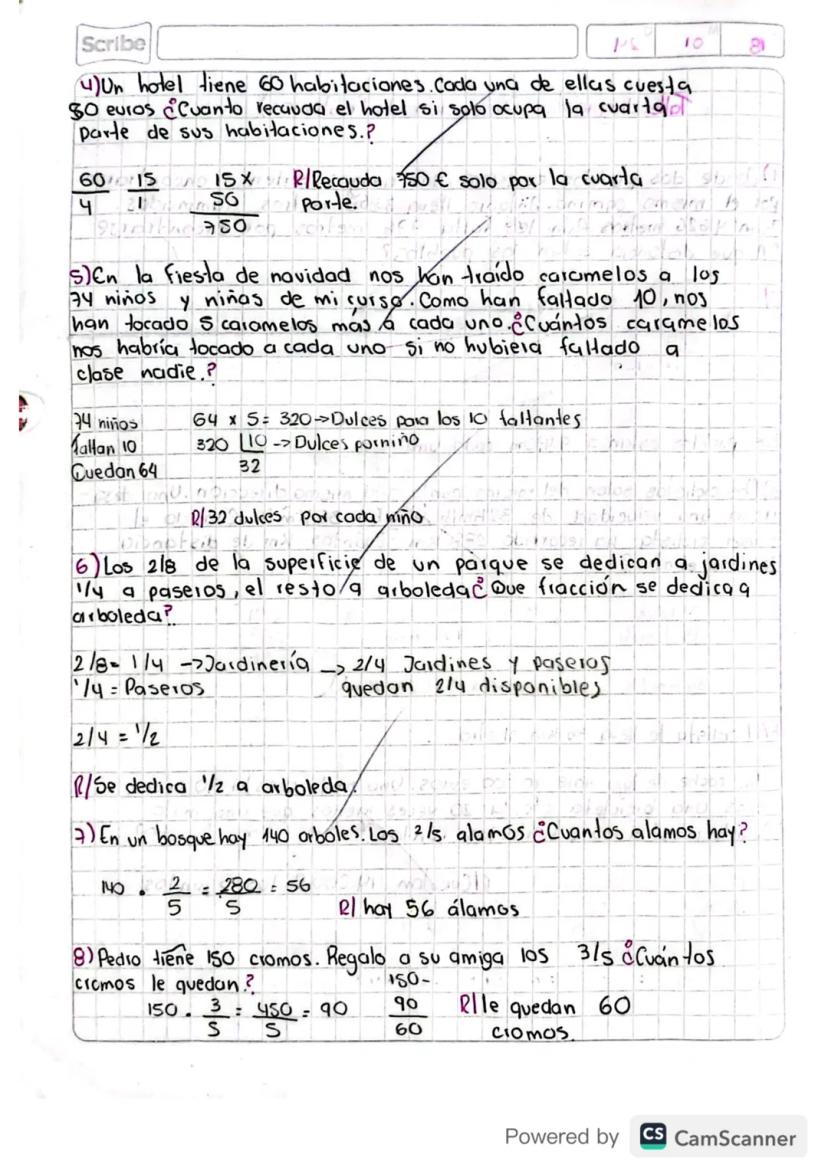 Scribe
10
4) Un hotel tiene 60 habitaciones. Cada una de ellas cuesta
50 euros ¿Cuanto recauda el hotel si solo ocupa la cuarta
parte de sus habitaciones.?
60 15 15 x R/ Recauda 750 € solo por la cuarta
4 50 parte.
750
5) En la fiesta de navidad nos han traído caramelos a los
74 niños y niñas de mi curso. Como han faltado 10, nos
han tocado 5 caramelos más a cada uno. ¿Cuántos caramelos
nos habría tocado a cada uno si no hubiera faltado a
clase nadie.?
74 niños 64 x 5 = 320 -> Dulces para los 10 faltantes
faltan 10 320 |10 -> Dulces por niño
Quedan 64 32
R/ 32 dulces por cada niño
6) Los 2/8 de la superficie de un parque se dedican a jardines
1/4 a paseros, el resto a arboleda ¿Que fracción se dedica a
arboleda?
2/8 = 1/4 -> Jardinería -> 2/4 Jardines y paseros
1/4 = Paseros quedan 2/4 disponibles
2/4 = 1/2
R/ Se dedica 1/2 a arboleda
7) En un bosque hay 140 arboles. Los 2/5 alamos ¿Cuantos alamos hay?
140 . 2/5 = 280/5 = 56
R/ hay 56 álamos
8) Pedro tiene 150 cromos. Regalo a su amiga los 3/5 ¿Cuántos
cromos le quedan?
150 . 3/5 = 450/5 = 90 150 - 90 60 R/ le quedan 60
cromos.
Powered by CS CamScanner